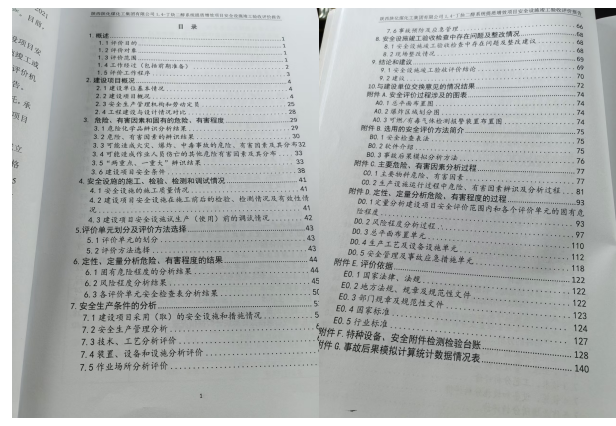 目 录
1 概述 1
1.1 评价目的 1
1.2 评价对象 1
1.3 评价范围 1
1.4 工作经过（包括前期准备）
1.5 评价工作程序 3
2.建设项目概况 4
2.1 建设单位基本情况 4
2.2 建设项目概况 4
2.3 安全生产管理机构和劳动定员 25
2.4 工程建设与设计情况对比 28
3. 危险、有害因素和固有的危险、有害程度 29
3.1 危险化学品辨识分析结果 29
3.2 危险、有害因素的辨识结果 30
3.3 可能造成火灾、爆炸、中毒事故的危险、有害因素及其分布 32
3.4 可能造成作业人员伤亡的其他危险有害因素及其分布 33
3.5 “两重点、一重大”辨识结果 33
3.6 建设项目安全条件 38
4.安全设施的施工、检验、检测和调试情况 41
4.1 安全设施的施工质量情况 41
4.2 建设项目安全设施在施工前后的检验、检测情况及有效性情
况 41
4.3 建设项目安全设施试生产（使用）前的调试情况 42
5.评价单元划分及评价方法选择 43
5.1 评价单元的划分 43
5.2 评价方法选择 43
6. 定性、定量分析危险、有害程度的结果 44
6.1 固有危险程度的分析结果 44
6.2 风险程度分析结果 45
6.3 各评价单元安全检查表分析结果 50
7. 安全生产条件的分析
7.1 建设项目采用（取）的安全设施和措施情况
7.2 安全生产管理分析
7.3 技术、工艺分析评价
7.4 装置、设备和设施分析评价
7.5 作业场所分析评价
1
7.6 事故预防及应急管理 66
8.安全设施竣工验收检查中存在问题及整改情况 68
8.1 安全设施竣工验收检查中存在问题及整改建议 68
8.2 现场整改情况
9.结论和建议 69
9.1 安全设施竣工验收评价结论 69
9.2 建议 70
10.与建设单位交换意见的情况结果 72
附件 A.安全评价过程涉及的图表 74
A0.1 总平面布置图 74
A0.2 爆炸区域划分图 74
A0.3 可燃/有毒气体检测报警装置布置图 74
附件 B.选用的安全评价方法简介 75
B0.1 安全检查表法 75
B0.2 软件介绍 75
B0.3 事故后果模拟分析方法 76
附件 C.主要危险、有害因素分析过程 77
C0.1 主要物料危险、有害因素 77
C0.2 生产设施运行过程中危险、有害因素辨识及分析过程 81
附件 D.定性、定量分析危险、有害程度的过程 93
D0.1 定量分析建设项目安全评价范围内和各个评价单元的固有危
险程度 93
D0.2 风险程度分析过程 97
D0.3 总平面布置单元 110
D0.4 生产工艺及设备设施单元 112
D0.5 安全管理及事故应急措施单元 118
附件 E.评价依据 122
E0.1 国家法律、法规 122
E0.2 地方法规、规章及规范性文件 122
E0.3 部门规章及规范性文件 123
E0.4 国家标准 124
E0.5 行业标准 127
附件 F.特种设备，安全附件检测检验台账 128
附件 G.事故后果模拟计算统计数据情况表 140